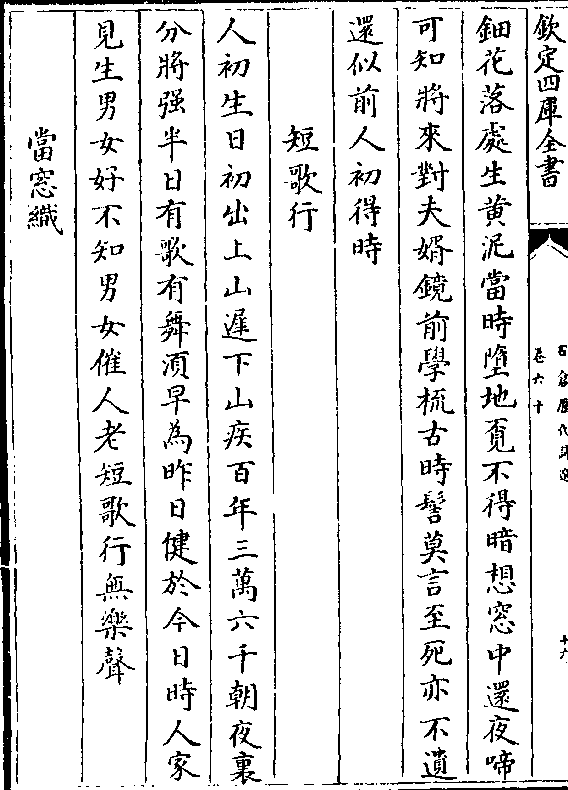 欽定四庫全書
石倉歷代詩選
卷六十
十六
鈿花落處生黄泥當時墮地覔不得暗想窓中還夜啼
可知將來對夫婿鏡前學梳古時髻莫言至死亦不遺
還似前人初得時
短歌行
人初生日初出上山遲下山疾百年三萬六千朝夜裏
分將强半日有歌有舞湏早為昨日健於今日時人家
見生男女好不知男女催人老短歌行無樂聲
當窓織